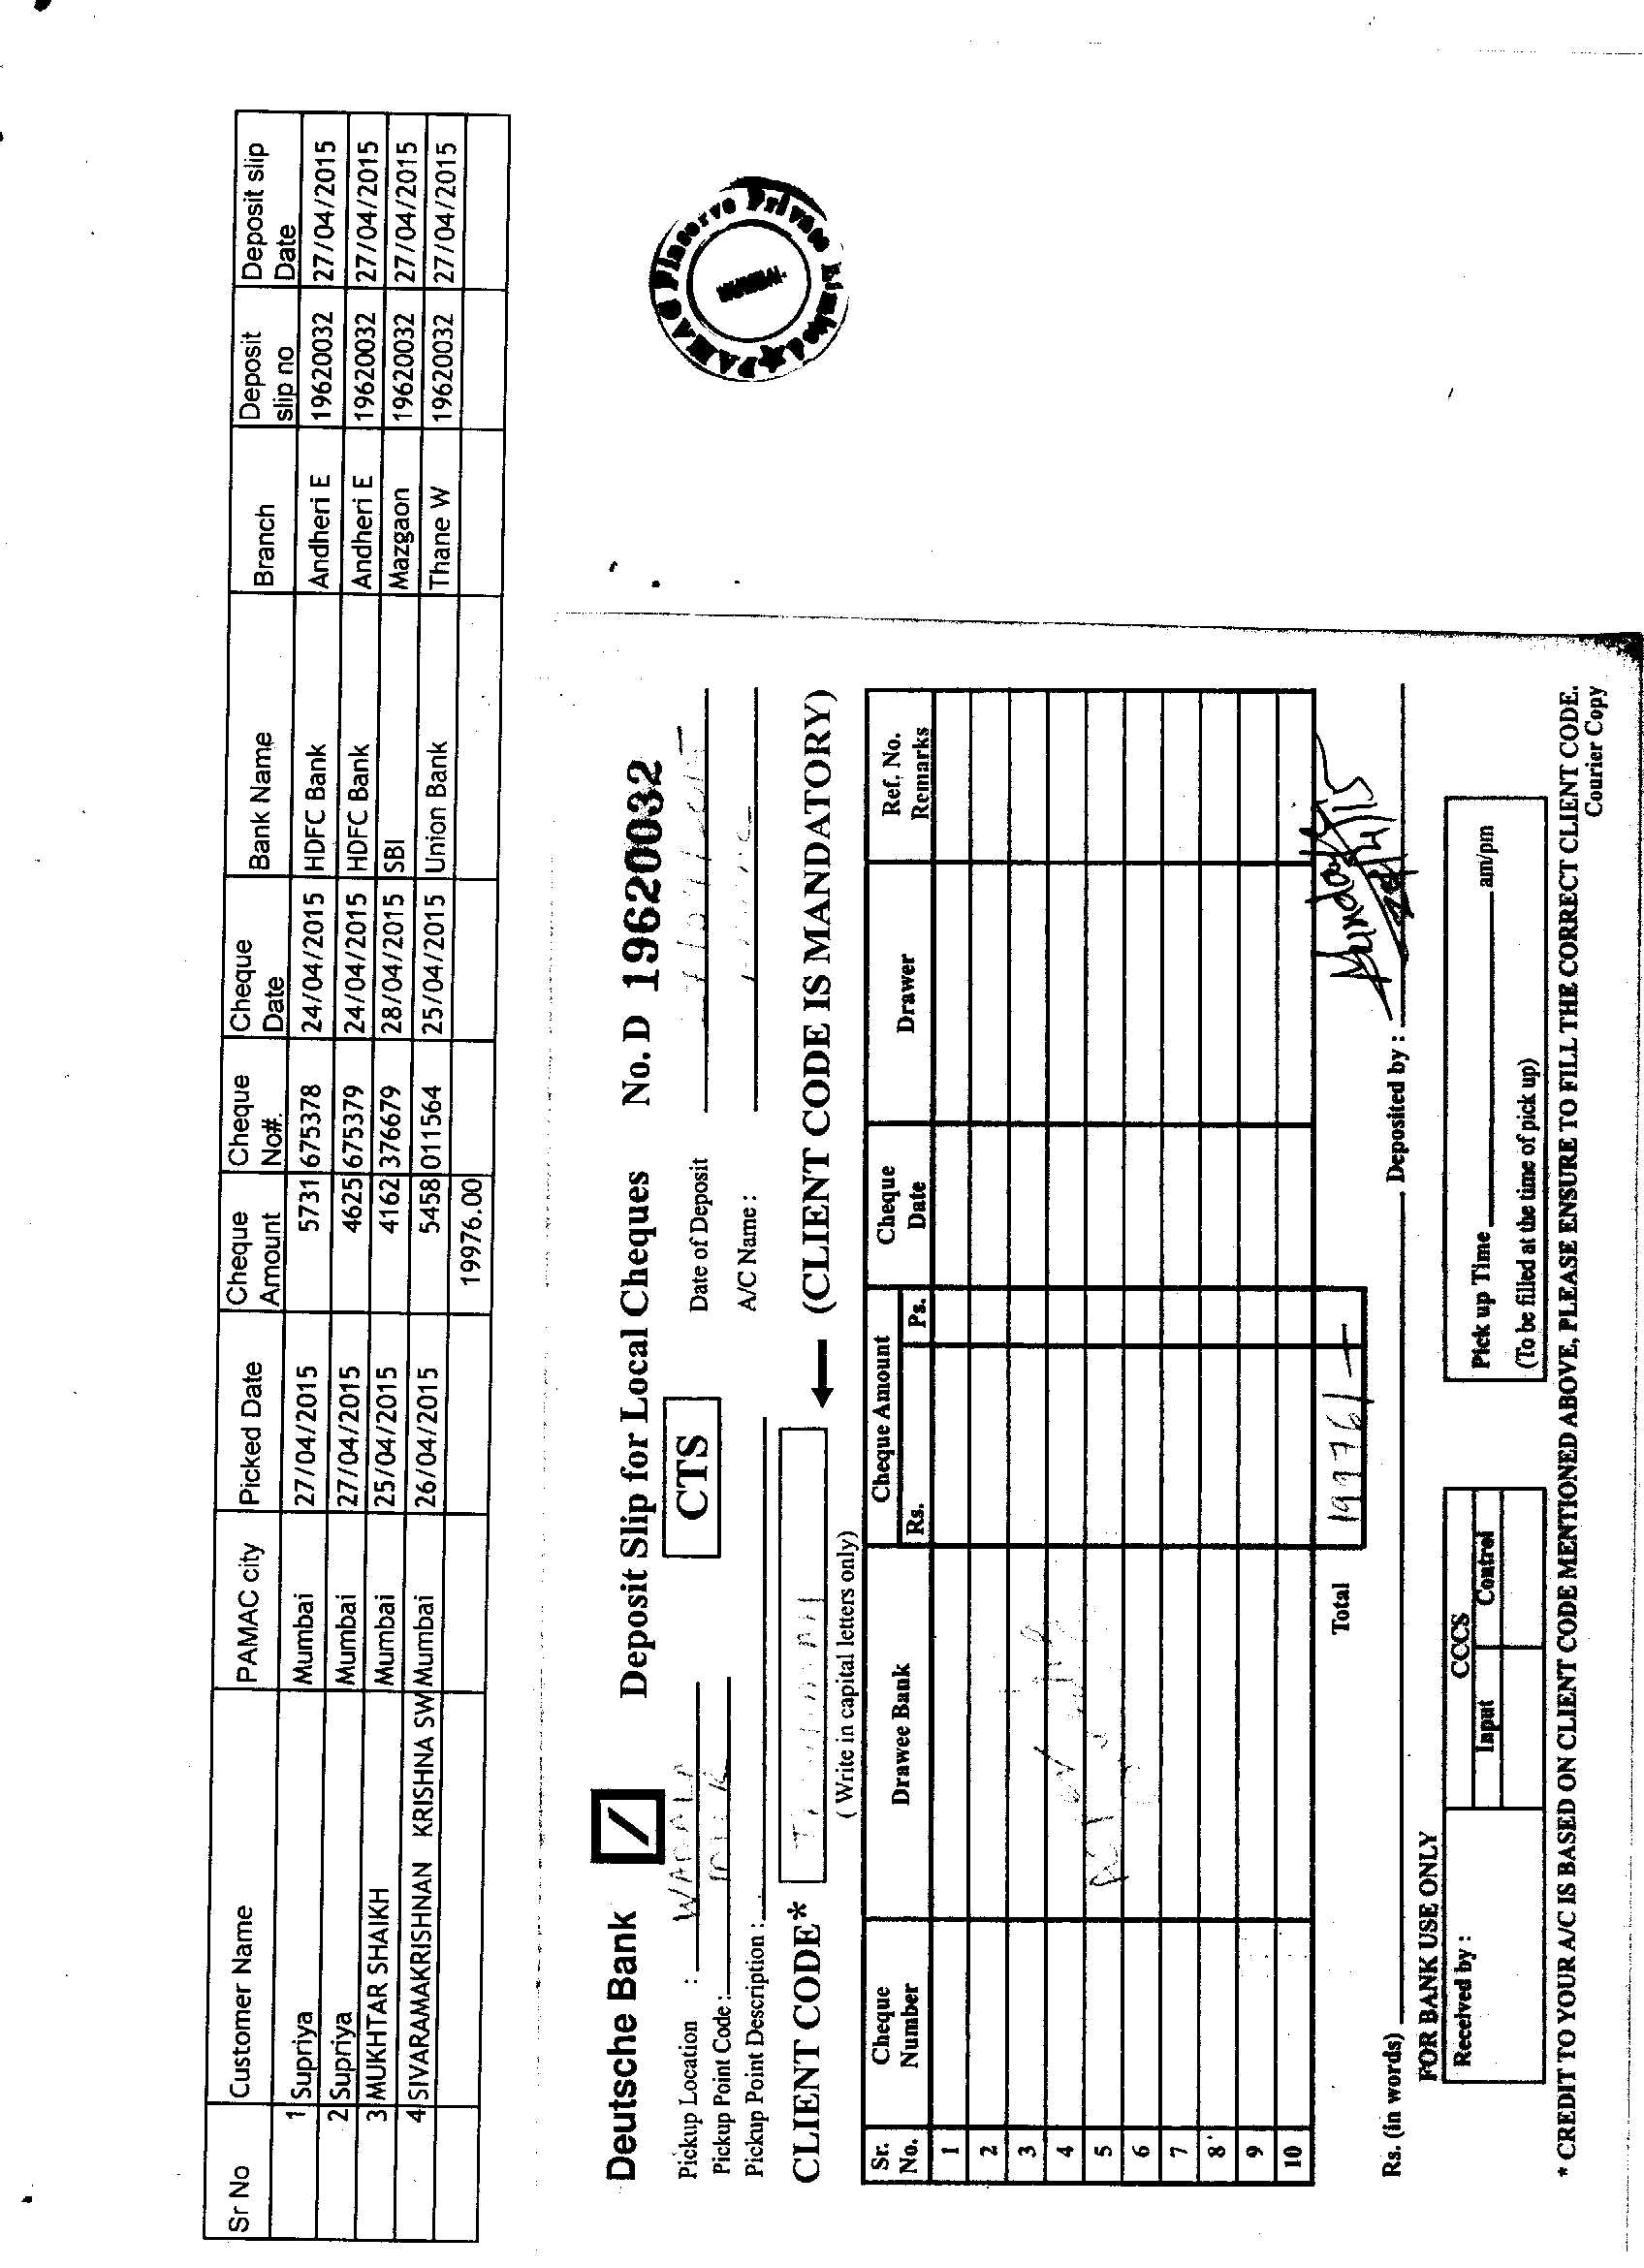 Sr No Customer Name PAMAC city Picked Date Cheque Amount Cheque No#. Cheque Date Bank Name Branch Deposit slip no Deposit slip Date
1 Supriya Mumbai 27/04/2015 5731 675378 24/04/2015 HDFC Bank Andheri E 19620032 27/04/2015
2 Supriya Mumbai 27/04/2015 4625 675379 24/04/2015 HDFC Bank Andheri E 19620032 27/04/2015
3 MUKHTAR SHAIKH Mumbai 25/04/2015 4162 376679 28/04/2015 SBI Mazgaon 19620032 27/04/2015
4 SIVARAMAKRISHNAN KRISHNA SW Mumbai 26/04/2015 5458 011564 25/04/2015 Union Bank Thane W 19620032 27/04/2015
19976.00
Deutsche Bank Deposit Slip for Local Cheques No. D 19620032
Pickup Location : WADALA CTS Date of Deposit
Pickup Point Code :
A/C Name :
Pickup Point Description :
CLIENT CODE* (CLIENT CODE IS MANDATORY)
( Write in capital letters only)
Sr. No. Cheque Number Drawee Bank Cheque Amount Rs. Ps. Cheque Date Drawer Ref. No. Remarks
1
2
3
4
5
6
7
8
9
10
Total 19976/-
Rs. (in words) Deposited by :
FOR BANK USE ONLY
Received by : CCCS Input Control
Pick up Time am/pm
(To be filled at the time of pick up)
* CREDIT TO YOUR A/C IS BASED ON CLIENT CODE MENTIONED ABOVE, PLEASE ENSURE TO FILL THE CORRECT CLIENT CODE.
Courier Copy
PAMAC Finserve Private Limited